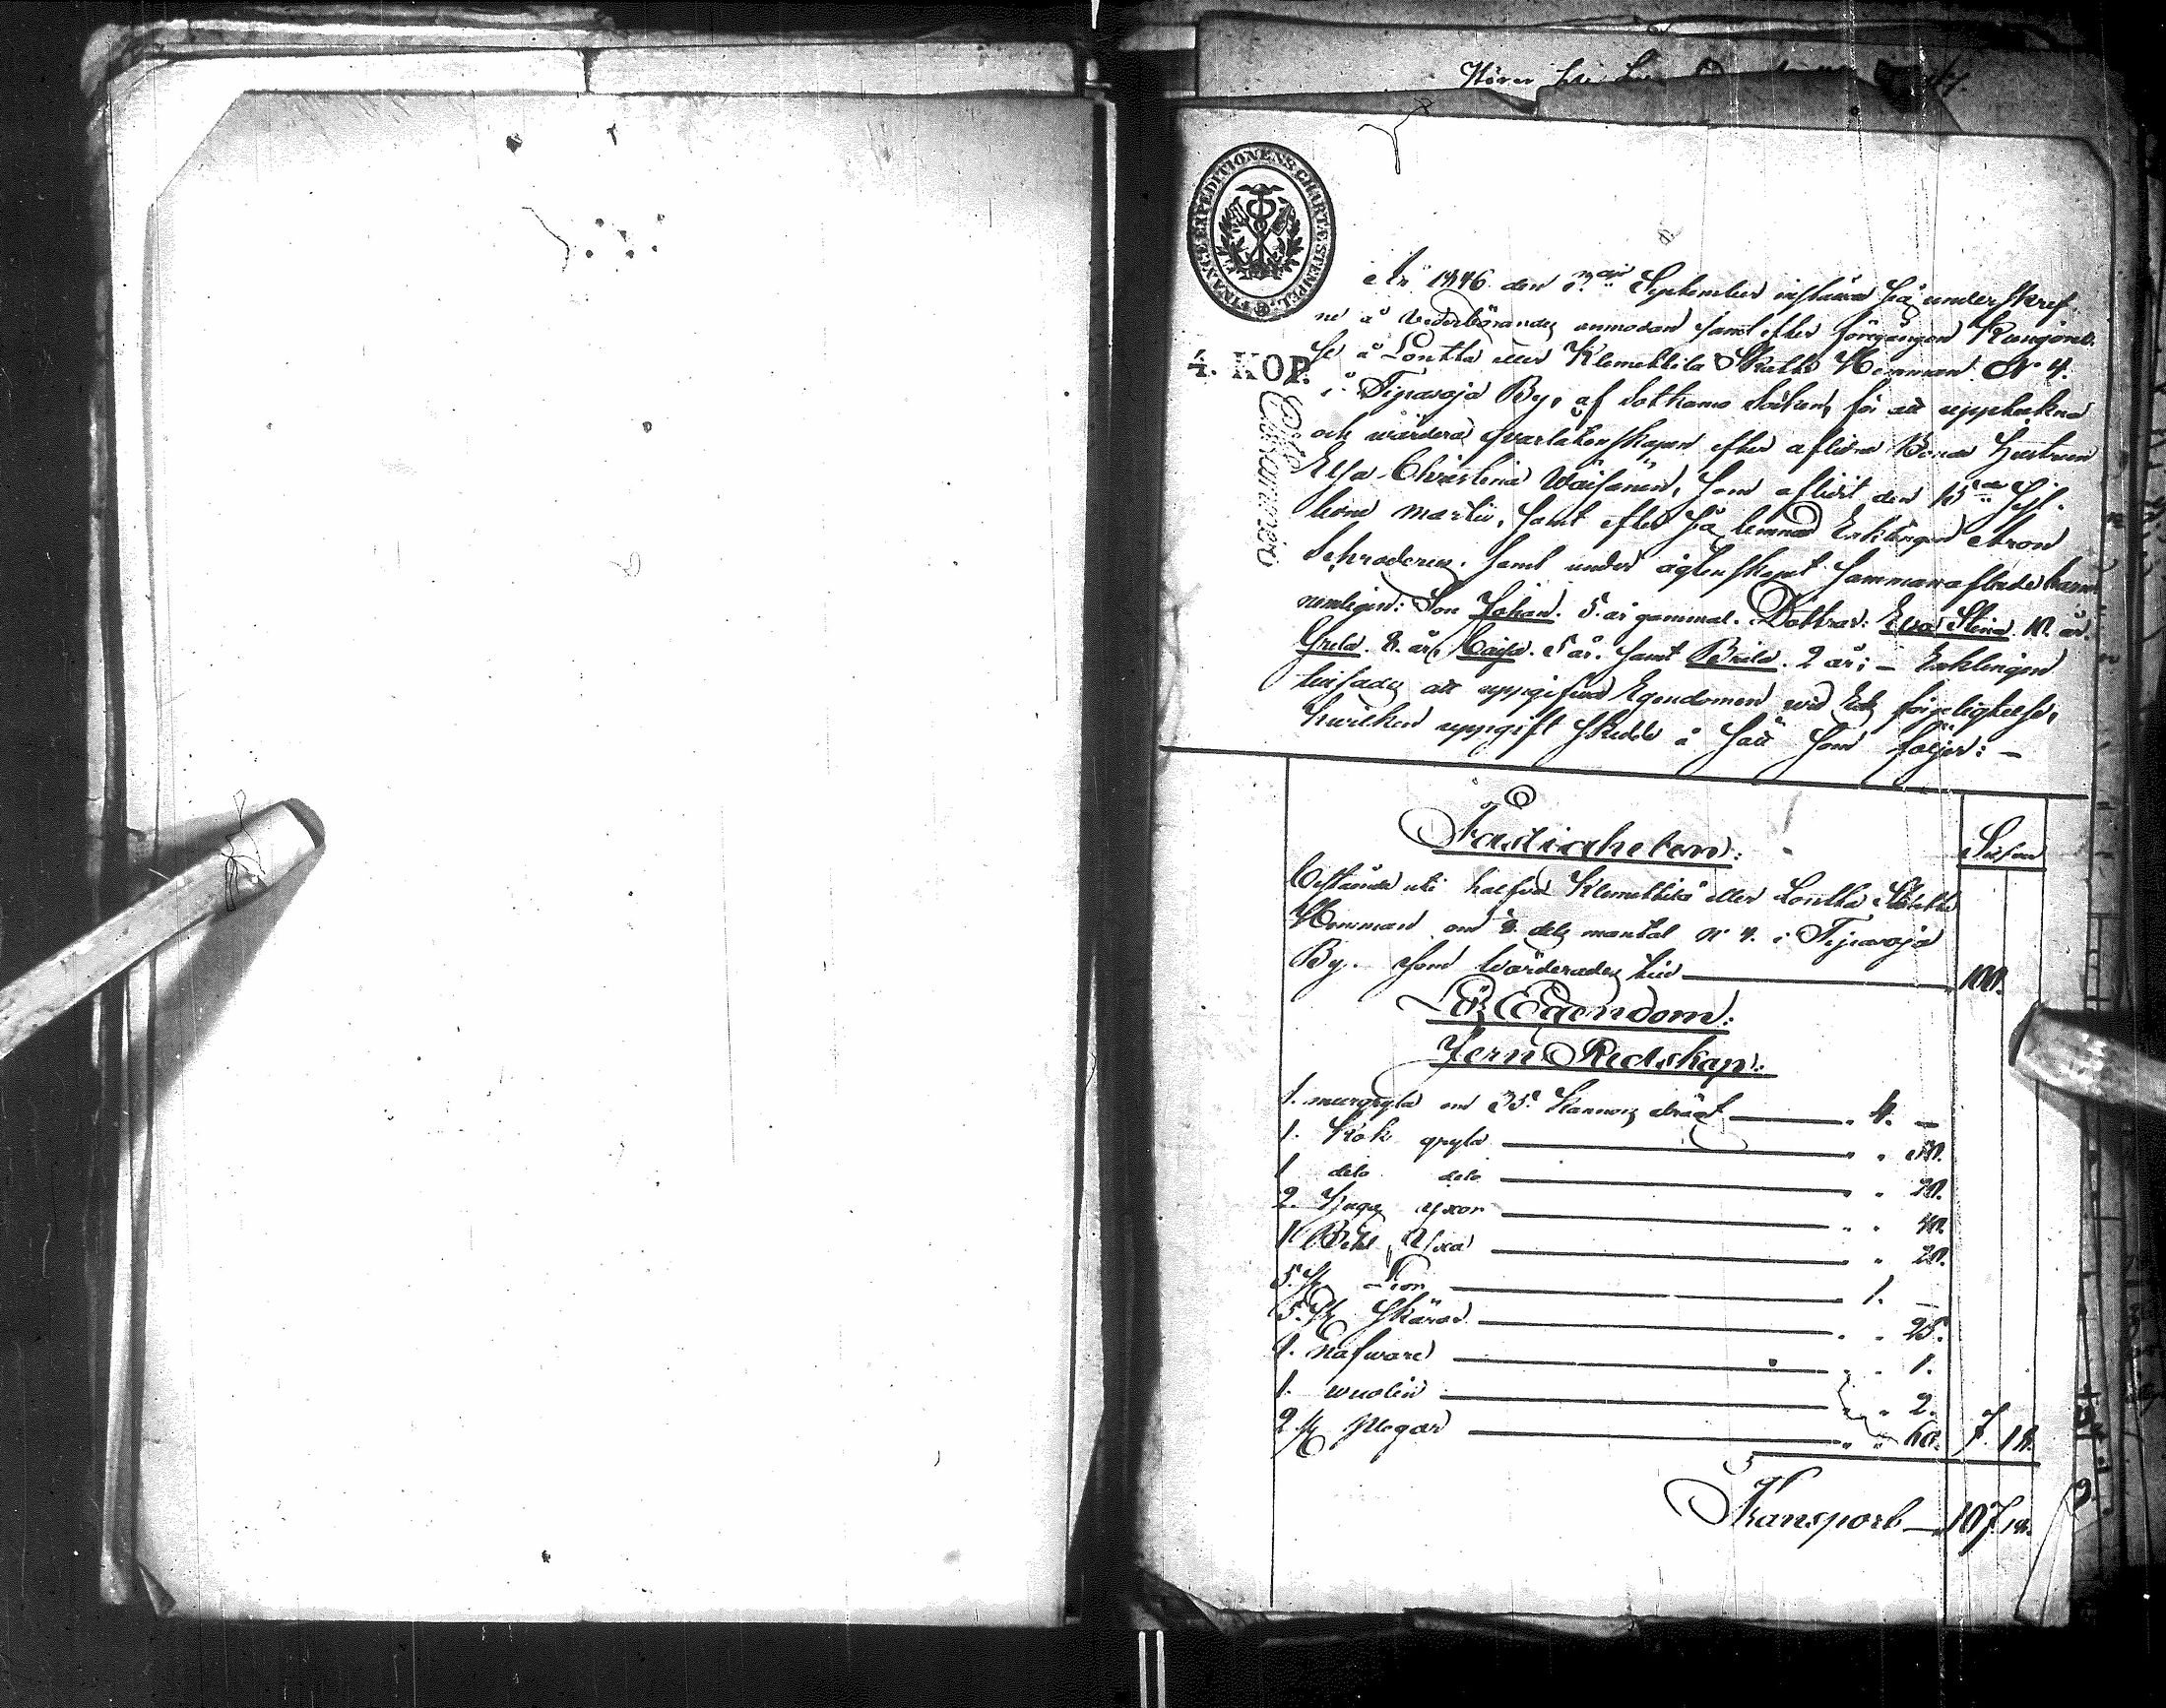 FINANCE EXPEDITIONENS CHARTÆ STEMPEL
4. KOP.
År 1846 den September instälde sig underskref-
ne å vederbörandes anmodan samt efter föregången Kungörel-
se å Lontta eller Klemettila Skatte Hemman N° 4.
i Tipasoja By, af Sotkamo Socken, för att uppteckna
och wärdera qvarlåtenskapen efter aflidna Bonde Hustrun
Elsa Christina Wäisänen, som aflidit den sist-
ledne Martii, samt efter sig lemnat Enklingen Aron
Schroderus. samt under ägtenskapet sammanaflade barn
nemligen: Son Johan. 5. år gammal. Döttrar: Eva Stina. 10. år.
Greta. 8. år, Caisa. 5 år. samt Brita. 2 år; – Enklingen
tilsades att uppgifva Egendomen vid Eds förpligtelse,
hvilken uppgift skedde å sätt som följer: –
Fastigheten:
Silfver
Bestående uti halfva Klemettila eller Lontta Skatte
Hemman om dels mantal N° 4. i Tipasoja
By. som Värderades till 100.
Lös Egendom:
Jern Redskap:
1. murgryta om 35. Kannors drägt 4. –
1. Kok gryta
1 dito dito 20.
2. Hugg yxor 40.
1 Bil Yxa 20.
5. st Liar 1. –
5. st Skäror 25.
1. nafware 1.
1. wuolin 2.
2 st plogar 60. 7. 18.
Transport 107. 18.